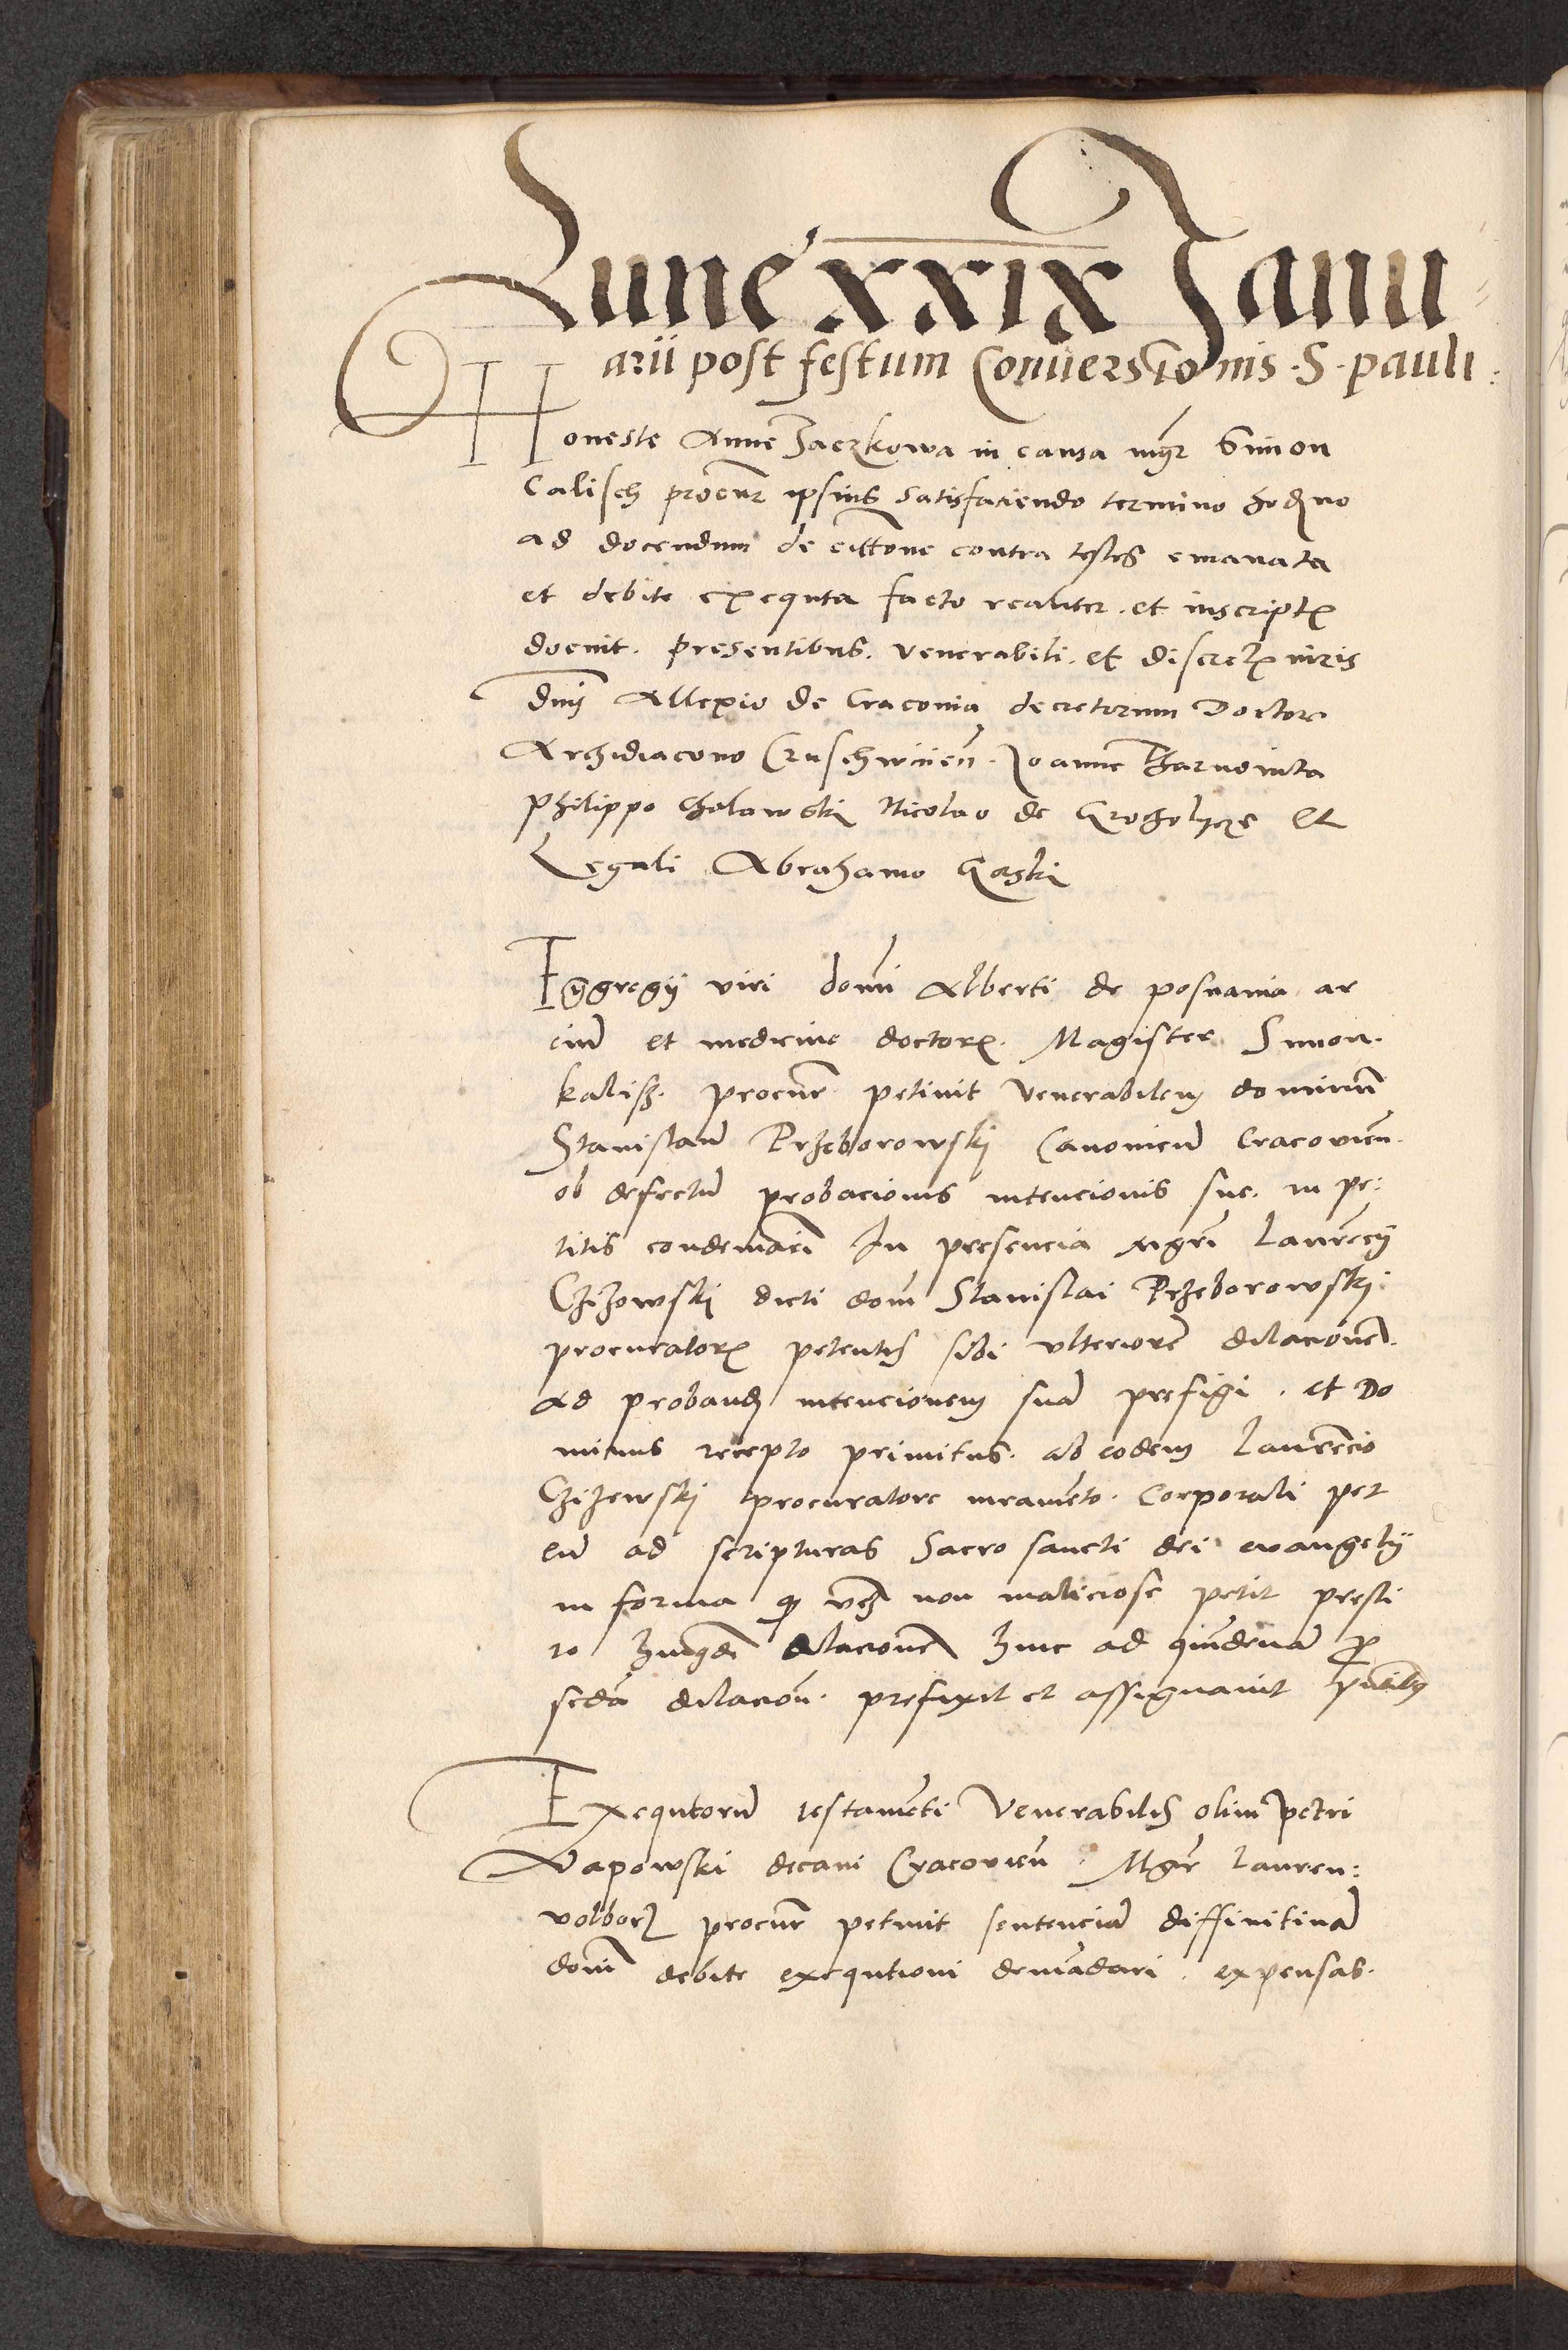 Lune xxix Janu
arii post festum Conversionis · S · pauli
Honeste Anne Zaczkowa in causa mgr Simon
Calisch procur ipsius satisfaciendo termino hodierno
ad docendum de cittone contra testes emanata
et debite exequta facto realiter. et inscriptis
docuit. presentibus. venerabili. et discretis viris
dnis Allexio de Cracovia decretorum Doctore
Archidiacono Cruschwicien. Joanne Tharnovita
Philippo Cholawski Nicolao de Grocholycze et
Legali Abrahamo Gaski
Egregii viri domi Alberti de posnania ar
cium et medicine doctoris. Magister Simon.
kalisz. procur petivit Venerabilem dominum
Stanislaum Przeborowskj Canonicum Cracovien.
ob defectum probacionis intencionis sue. in pe:
titis condemnari In presencia mgri Laurencij
Czizowskj dicti domi Stanislai Przeborowskj
procuratoris petentis sibi ulteriorem dilacionem.
ad probandum intencionem suam prefigi. et Do
minus recepto primitus. ab eodem Laurencio
Czizewskj procuratore iuramento. Corporali per
eum ad scripturas Sacro sancti dei evangelij
in forma quod non maliciose petit presti
to huiusmodi dilacionem hinc ad quindenam pro
secunda dilacione. prefixit et assignavit presentibus
Exequtorum testamenti Venerabilis olim Petri
Vapowski decani Cracovien. Mgr Lauren:
volborz procur petivit sentenciam diffinitivam
domi debite exequtioni demandari. expensas.